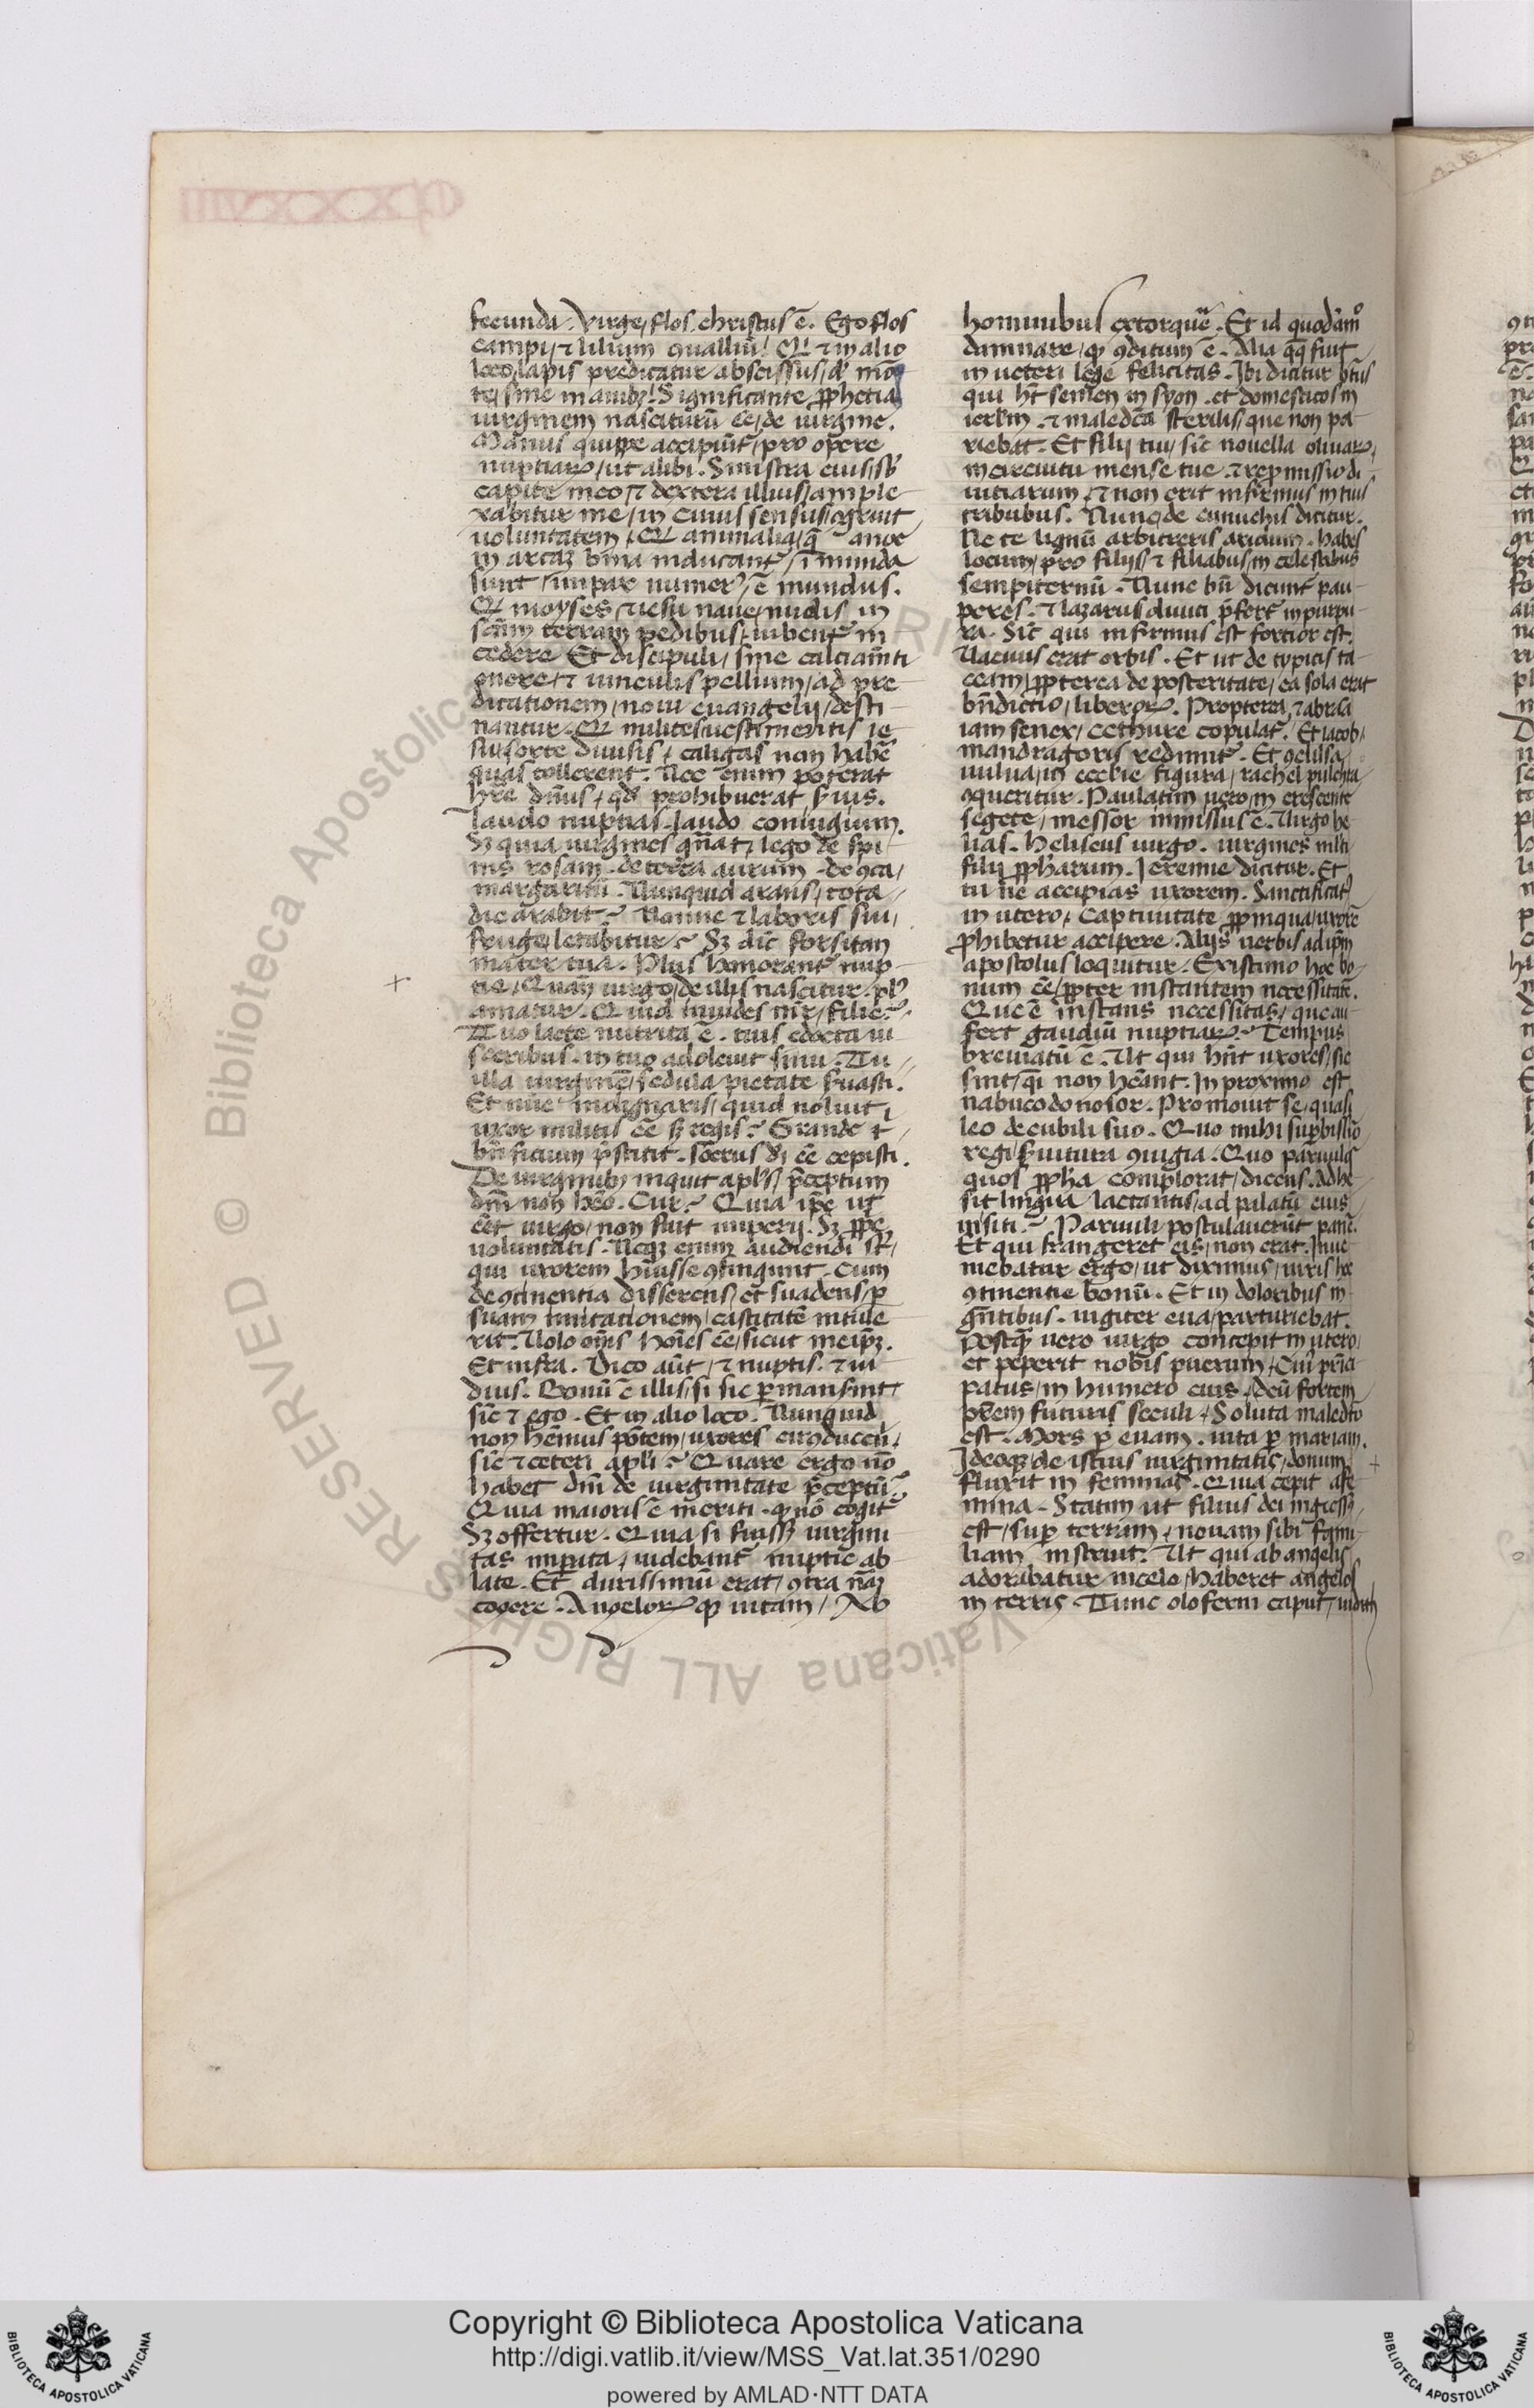 fecunda. Virge, flos christus ē. Ego flos
campi, ⁊ lilium ꝯualliū. Qui ⁊ in alio
loco, lapis predicatur abscissus, de mō
te, sine manibꝫ. Significante ꝓphetia,
uirginem nasciturū ēe, de uirgine.
Manus quippe accipiunt᷑, pro opere
nuptiaꝝ, ut alibi. Sinistra eius, sub
capite meo, ⁊ dextera illius, ample
xabitur me, in cuius sensus, ꝯgruit
uoluntatem. Qꝫ animalia, q̄ a noe
in arcaꝫ bina inducant᷑, īmunda
sunt, impar numerꝰ, ē mundus.
Qꝫ moyses, ⁊ iesu naue, nudis in
scām terram pedibus, iubent᷑ in
cedere. Et discipuli, sine calciam̄ti
onere, ⁊ uinculis pellium, ad pre
dicationem, noui euangelij, desti
nantur. Qꝫ milites, uestimentis ie
su, sorte diuisis, caligas non habē
quas tollerent. Nec enim poterat
hr̄e dn̄us, qd̄ prohibuerat ẜuis.
Laudo nuptias. laudo coniugium.
Sꝫ quia uirgines gn̄at. lego de spi
nis rosam. de terra aurum. de ꝯca,
margaritū. Nunquid arans, tota
die arabit? Nonne ⁊ laboris sui,
fruge letabitur? Sꝫ dic̄ forsitan
mater tua. Plus honorant᷑ nup
tie, Quan uirgo, de illis nascitur. plꝰ
amatur. Quid inuides mr̄, filie?
Tuo lacte nutrita ē. tuis educta ui
sceribus. in tuo adoleuit sinu. Tu
illa uirginē, sedula pietate ẜuasti.
Et nūc indignaris, quid noluit,
uxor militis ēe sꝫ regis? Grande t
bn̄ficium p̄stitit. socrus dei ēe cepisti.
De uirginibꝫ inquit apl̄s, p̄ceptum
dn̄i non hēo. Cur? Quia ip̄e ut
ēet uirgo, non fuit imperij. Sꝫ ꝓpe
uoluntatis. Neqꝫ enim audiendi st̄,
qui uxorem hūisse ꝯfingunt. Cum
de ꝯtinentia disserens, et suadens, ꝑ
suam imitationem, castitatē intule
rit. Uolo om̄s hoīes ēe, sicut meip̄ꝫ.
Et infra. Dico aūt, ⁊ nuptis. ⁊ ui
duis. Bonū ē illis, si sic ꝑmanserint
sic̄ ⁊ ego. Et in alio loco. Nunquid
non hēmus pōtem, uxores circūducen̄.
sic̄ ⁊ ceteri apl̄i? Quare ergo nō
habet dn̄i de uirginitate p̄ceptū?
Quia maioris ē meriti. qꝫ nō cogit᷑
Sꝫ offertur. Quia si fuissꝫ uirgini
tas imꝑata, uidebant᷑ nuptie ab
late. Et durissimū erat, ꝯtra nāꝫ
cogere. Angeloꝝ qꝫ uitam, Ab
hominibus extorquē. Et id quodāmº
damnare, qꝫ ꝯditum ē. Alia qꝫ fuit
in ueteri lege felicitas. Ibi dicitur bt̄us
qui hēt semen in syon. et domesticos in
ierl̄m. ⁊ maledc̄a sterilis, que non pa
riebat. Et filij tui, sic̄ nouella oliuaꝝ,
in circuitu mense tue. ⁊ repromissio di
uitiarum, ⁊ non erit infirmus in tuis
tribubus. Nunc, de eunuchis dicitur.
Ne te lignū arbitreris aridum. habes
locum, pro filijs, ⁊ filiabus, in celestibus
sempiternū. Nunc bn̄ dicunt᷑ pau
peres. ⁊ lazarus diuiti p̄fert᷑ in purpu
ra. Sic̄ qui infirmus est fortior est.
Uacuus erat orbis. Et ut de typicis ta
ceam, ꝓpterea de posteritate, ea sola erat
bn̄dictio, liberoꝝ. Propterea, ⁊ abraā
iam senex, cethure copulat᷑. Et iacob,
mandragoris redimit᷑. Et ꝯclusa,
uulua, in ecclīe figura, rachel pulchra,
ꝯqueritur. Paulatim uero, in crescente
segete, messor inmissus ē. Uirgo he
lias. Heliseus uirgo. uirgines mlti
filij ꝓphetarum. Ieremie dicitur. Et
tu ne accipias uxorem. Sanctificatꝰ
in utero, Captiuitate ꝓpinqua, uxorē
ꝓhibetur accipere. Alijs uerbis ad ip̄m
apostolus loquitur. Existimo hoc bo
num ēe, ꝓpter instantem necessitatē.
Que ē instans necessitas, que au
fert gaudiū nuptiaꝝ? Tempus
breuiatū ē. Ut qui hn̄t uxores, sic
sint, q̄i non hēant. In proximo est
nabucodonosor. Promouit se, quasi
leo de cubili suo. Quo mihi suꝑbissīo
regi ẜuitura ꝯiugia. Quo paruulos
quos ꝓpha complorat, dicens. Adhe
sit lingua lactantis, ad palatū eius
in siti? Paruuli postulauerūt panē.
Et qui frangeret eis, non erat. Inue
niebatur ergo, ut diximus, uiris hoc
ꝯtinentie bonū. Et in doloribus in
gn̄tibus. iugiter eua, parturiebat.
Postqꝫ uero uirgo concepit in utero,
et peperit nobis puerum, Cuiꝰ prīci
patus, in humero eius, deū fortem,
prēm futuris seculi, Soluta maledcō
est. Mors ꝑ euam. uita ꝑ mariam.
Ideoqꝫ de istius uirginitatis, donum
fluxit in feminas. Quia cepit afe
mina. Statim ut filius dei ingressꝰ
est, suꝑ terram, nouam sibi fami
liam instruit. Ut qui ab angelis
adorabatur in celo, haberet angelos
in terris. Tunc oloferni caput, iudith
Copyright © Biblioteca Apostolica Vaticana
http://digi.vatlib.it/view/MSS_Vat.lat.351/0290
powered by AMLAD·NTT DATA